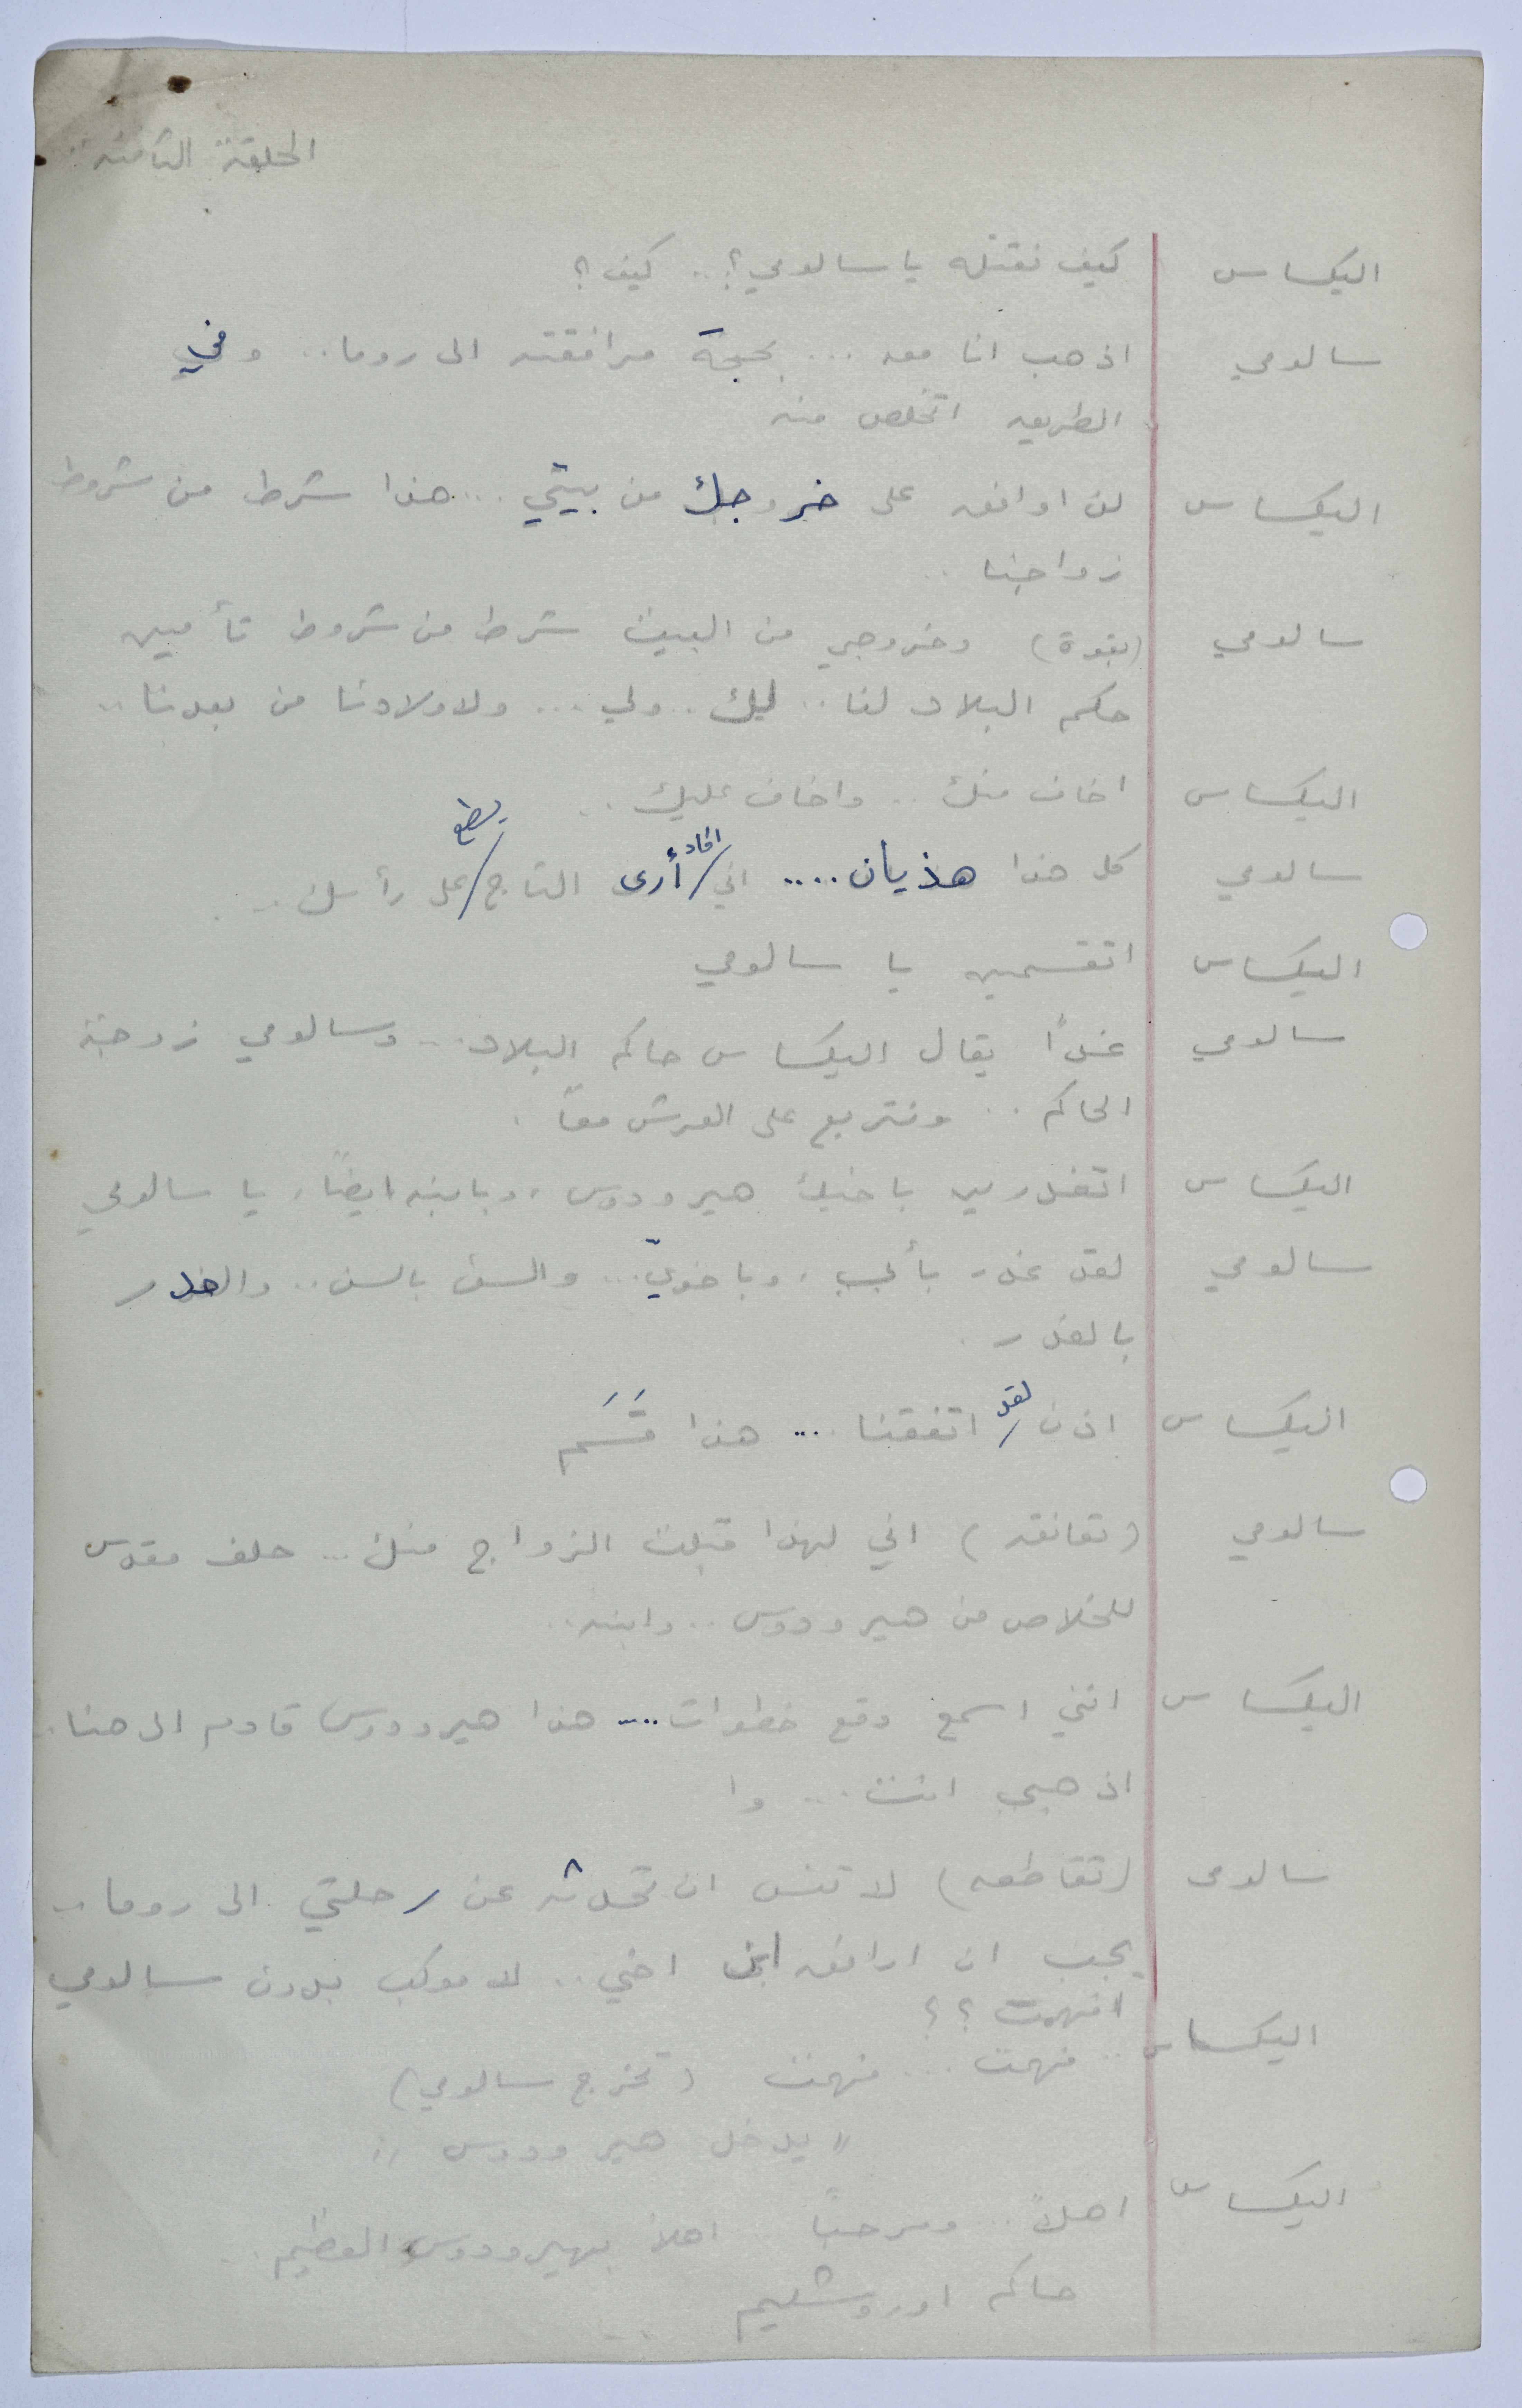 الحلقة الثامنة:
اليكساس كيف نقتله يا سالومي؟.. كيف؟
سالومي اذهب انا معه ... بحجة مرافقته الى روما.. وفي
الطريق اتخلص منه
اليكساس لن اوافق على خروجك من بيتي ... هذا شرط من شروط
زواجنا ..
سالومي (بقوة) وخروجي من البيت شرط من شروط تأمين
حكم البلاد لنا .. لك .. ولي ... ولاولادنا من بعدنا ..
اليكساس اخاف منك .. واخاف عليك ..
سالومي كل هذا هذيان .... اني اكاد أرى التاج يسطع على رأسك ..
اليكساس اتقسمين يا سالومي
سالومي غداً يقال اليكساس حاكم البلاد ... وسالومي زوجة
الحاكم .. ونتربع على العرش معاً .
اليكساس اتغدرين باخيك هيرودوس، وبابنه ايضاً، يا سالومي
سالومي لقد غدر بأبي، وباخويّ ... والسن بالسن .. والغدر
بالغدر .
اليكساس اذن لقد اتفقنا ... هذا قَسَم
سالومي (تعانقه) اني لهذا قبلت الزواج منك ... حلف مقدس
للخلاص من هيرودوس .. وابنه ..
اليكساس انني اسمع وقع خطوات .... هذا هيرودوس قادم الى هنا .
اذهبي انت ... وا
سالومي (تقاطعه) لا تنس ان تحدثه عن رحلتي الى روما ..
يجب ان ارافق ابن اخي .. لا موكب بدون سالومي
افهمت ؟؟
اليكساس .. فهمت ... فهمت (تخرج سالومي)
" يدخل هيرودوس "
اليكساس اهلاً ... ومرحباً .. اهلاً بهيرودوس العظيم ..
حاكم اوروشليم ...